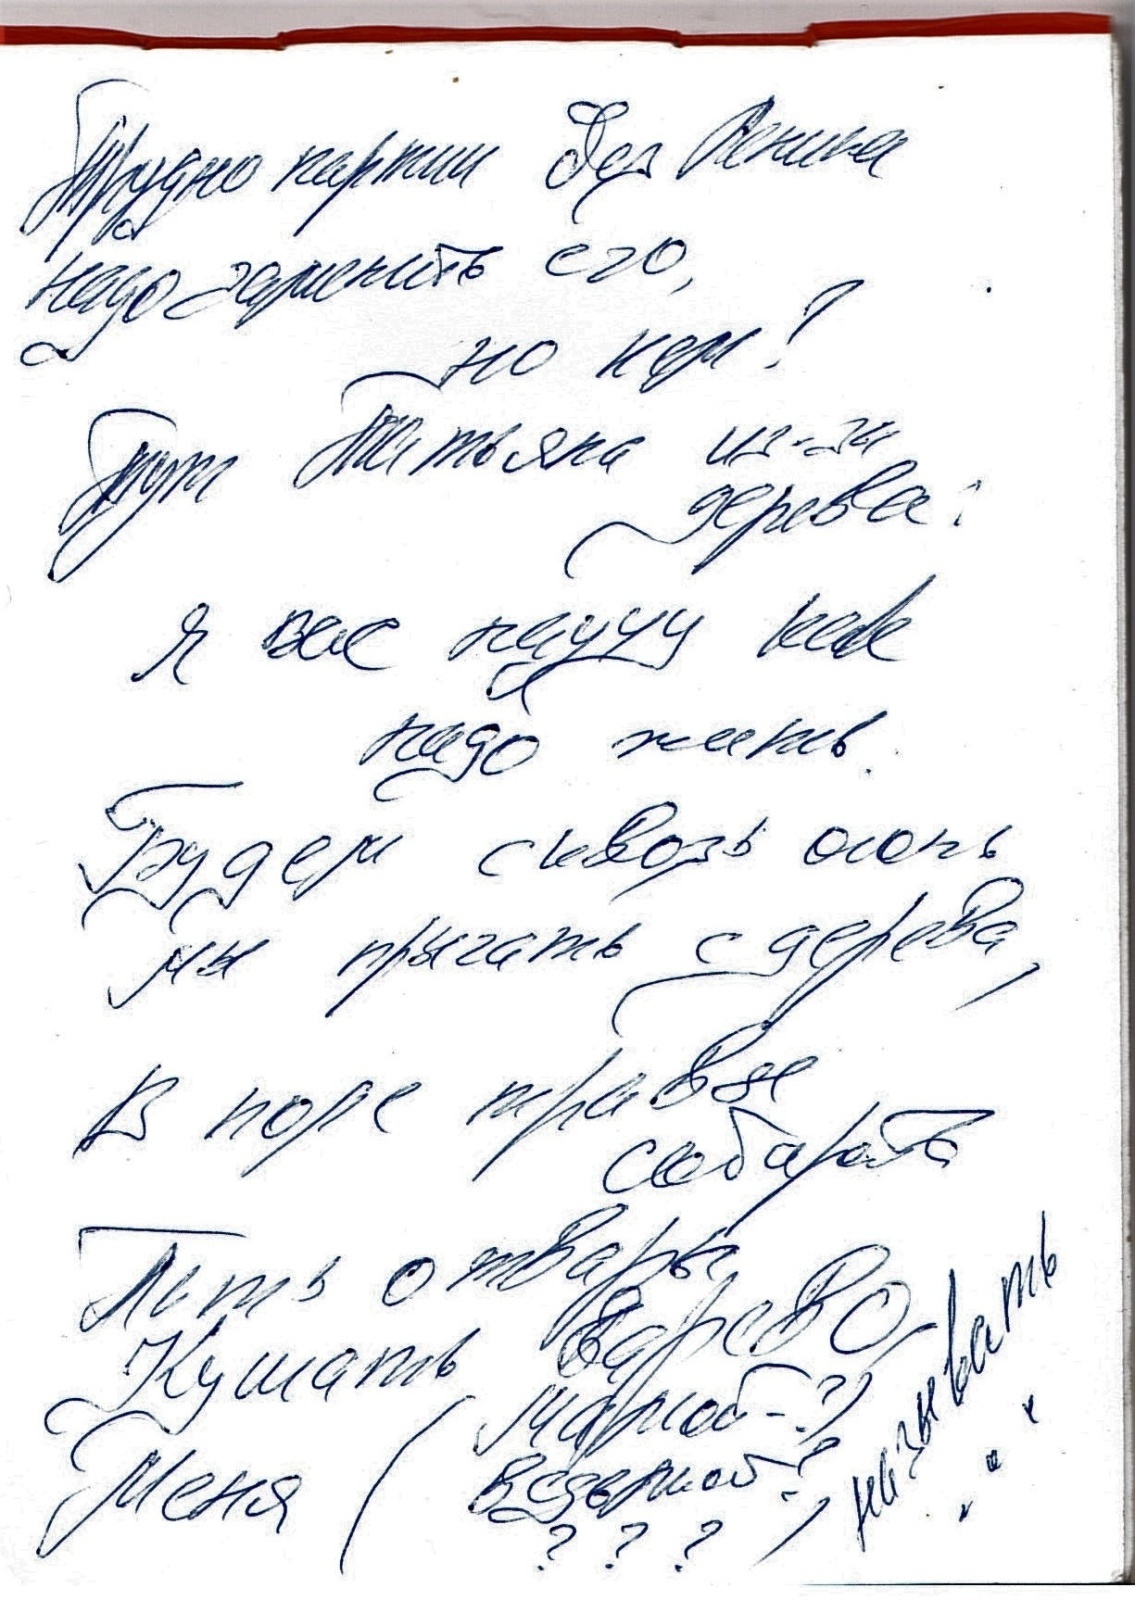 Трудно партии без Ленина
надо заменить его,
но кем?
Тут Татьяна из-за
дерева:
Я вас научу как
надо жить.
Будем сквозь огонь
мы прыгать с дерева,
В поле травы
собарать
Пить отвары
Кушать варево,
Меня (мамой-?
ведьмой?
? ? ?)
называть
...